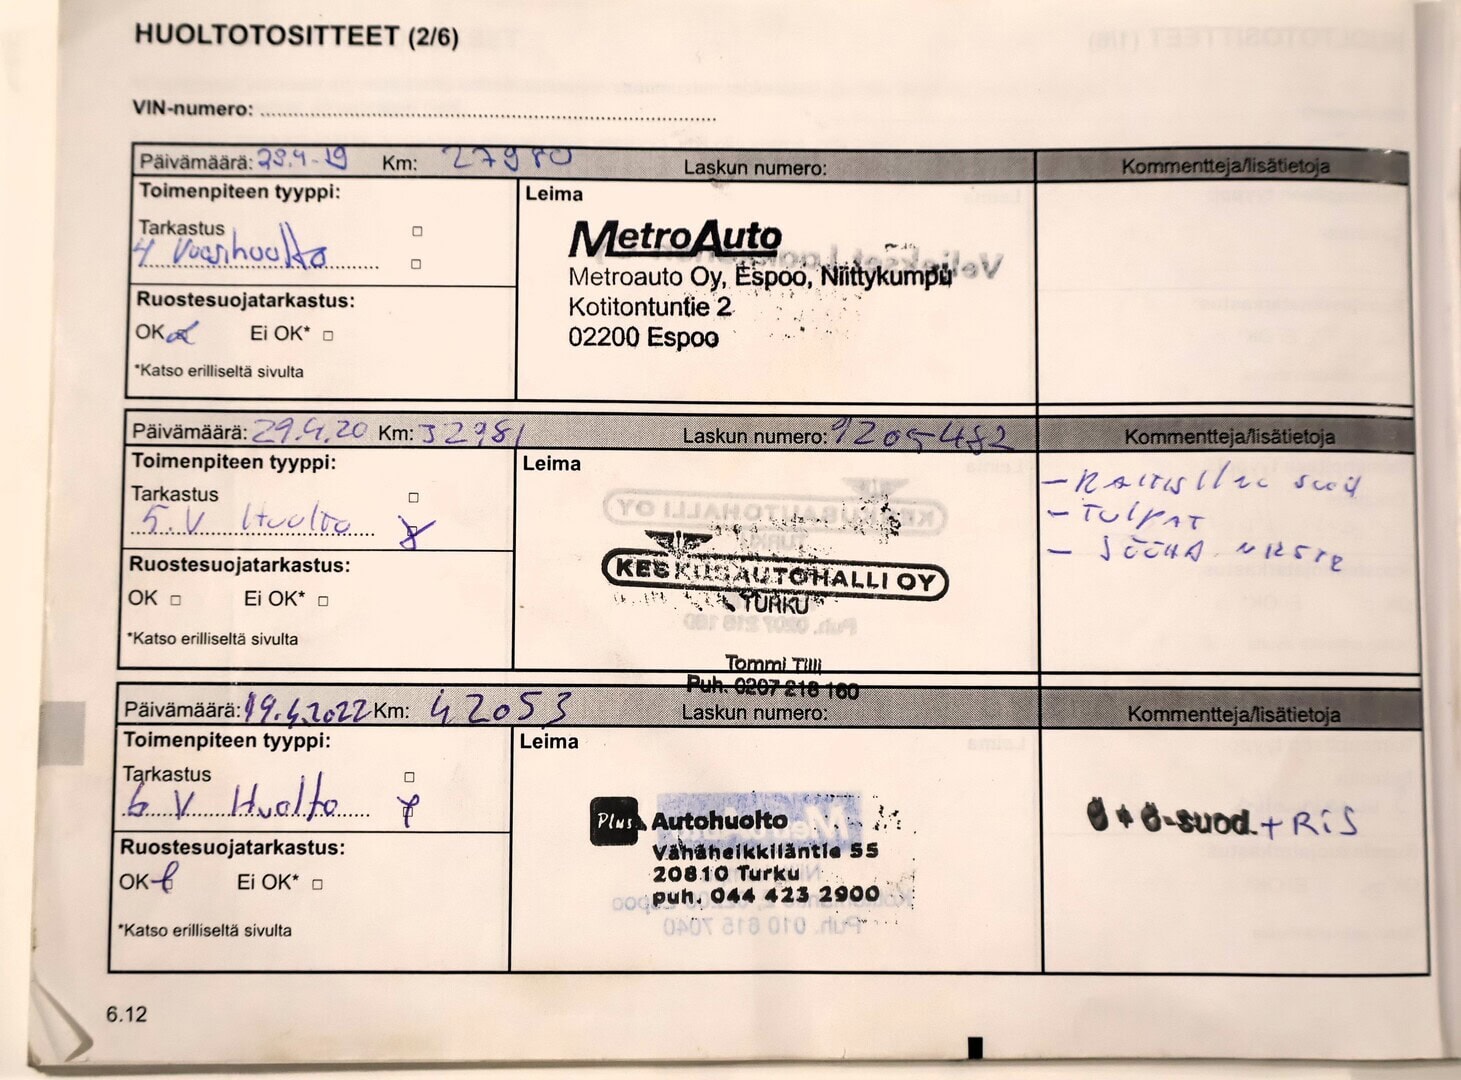 HUOLTOTOSITTEET (2/6)
VIN-numero:
Päivämäärä: 29.4-19 Km: 27980 Laskun numero: Kommentteja/lisätietoja
Toimenpiteen tyyppi: Leima
Tarkastus
4 Vuosihuolto
Ruostesuojatarkastus:
OK Ei OK*
*Katso erilliseltä sivulta
MetroAuto
Metroauto Oy, Espoo, Niittykumpu
Kotitontuntie 2
02200 Espoo
Päivämäärä: 29.4.20 Km: 32981 Laskun numero: 9205482 Kommentteja/lisätietoja
Toimenpiteen tyyppi: Leima
Tarkastus
5.V Huolto
Ruostesuojatarkastus:
OK Ei OK*
*Katso erilliseltä sivulta
KESKUSAUTOHALLI OY
TURKU
Tommi Tilli
Puh. 0207 218 160
- RAITISILMA SUOD
- TULPAT
- JÖÖHD. NESTE
Päivämäärä: 19.4.2022 Km: 42053 Laskun numero: Kommentteja/lisätietoja
Toimenpiteen tyyppi: Leima
Tarkastus
6 V Huolto
Ruostesuojatarkastus:
OK Ei OK*
*Katso erilliseltä sivulta
Plus Autohuolto
Vähäheikkiläntie 55
20810 Turku
puh. 044 423 2900
Ö + Ö-suod. + RiS
6.12